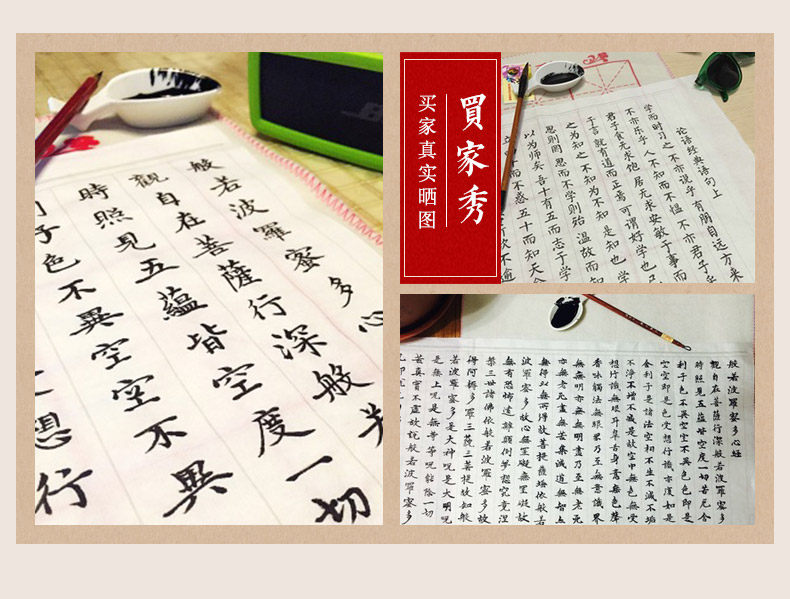 般若波羅蜜多心
觀自在菩薩行深般
時照見五蘊皆空度一切
利子色不異空空不異
想行
買家秀
买家真实晒图
论语经典语句上
学而时习之不亦说乎有朋自远方来
不亦乐乎人不知而不愠不亦君子乎
君子食无求饱居无求安敏于事而
于言就有道而正焉可谓好学也
之为知之不知为不知是知也学
思则罔思而不学则殆温故而知
以为师矣吾十有五而志于学
而不惑五十而知天命
欲不逾
般若波羅蜜多心經
觀自在菩薩行深般若波羅蜜多
時照見五蘊皆空度一切苦厄舍
利子色不異空空不異色色即是
空空即是色受想行識亦復如是
舍利子是諸法空相不生不滅不垢
不淨不增不減是故空中無色無受
想行識無眼耳鼻舌身意無色聲
香味觸法無眼界乃至無意識界
無無明亦無無明盡乃至無老死
亦無老死盡無苦集滅道無智亦
無得以無所得故菩提薩埵依般若
波羅蜜多故心無罣礙無罣礙故
無有恐怖遠離顛倒夢想究竟涅
槃三世諸佛依般若波羅蜜多故
得阿耨多羅三藐三菩提故知般
若波羅蜜多是大神咒是大明咒
是無上咒是無等等咒能除一切
苦真實不虛故說般若波羅蜜多